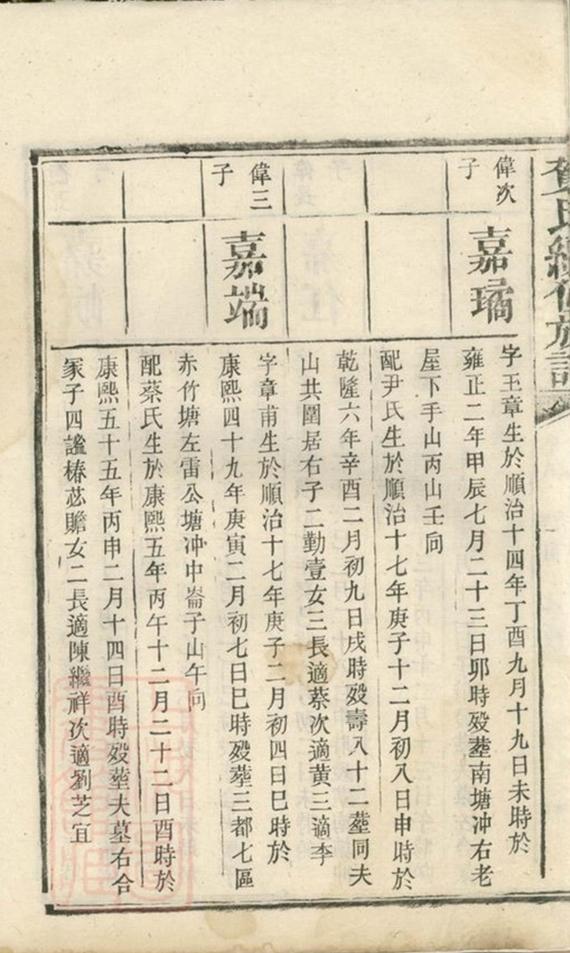 氏續修族譜
偉次子
嘉璚
字王章生於順治十四年丁酉九月十九日未時於
雍正二年甲辰七月二十三日卯時歿塟南塘冲右老
屋下手山丙山壬向
配尹氏生於順治十七年庚子十二月初八日申時於
乾隆六年辛酉二月初九日戌時歿壽八十二塟同夫
山共圍居右子二勤壹女三長適蔡次適黃三適李
偉三子
嘉端
字章甫生於順治十七年庚子二月初四日巳時於
康熙四十九年庚寅二月初七日巳時歿塟三都七區
赤竹塘左雷公塘冲中崙子山午向
配蔡氏生於康熙五年丙午十二月二十二日酉時於
康熙五十五年丙申二月十四日酉時歿塟夫墓右合
冢子四謐椿苾贍女二長適陳繼祥次適劉芝宜